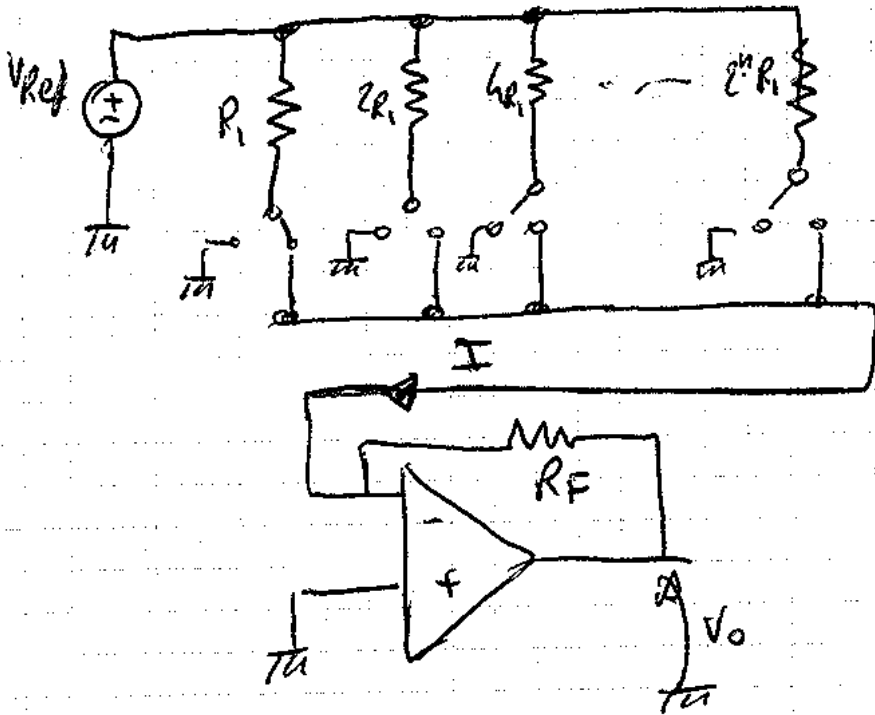 VRef
+
-
R1
2R1
4R1
2ⁿR1
I
RF
-
+
Vo